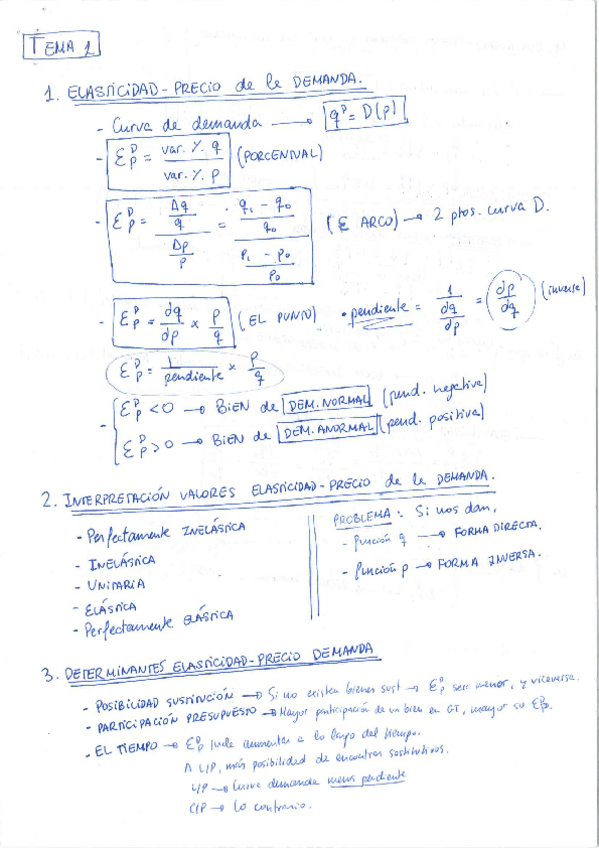 TEMA 1
1. ELASTICIDAD-PRECIO de la DEMANDA.
- Curva de demanda → q^D = D(p)
- E_P^D = var. % q / var. % p (PORCENTUAL)
- E_P^D = (Δq / q) / (Δp / p) = ((q₁ - q₀) / q₀) / ((p₁ - p₀) / p₀) (E ARCO) → 2 ptos. curva D.
- E_P^D = dq/dp × p/q (EL PUNTO) • pendiente = 1 / (dq/dp) = dp/dq (inversa)
E_P^D = 1/pendiente × p/q
- { E_P^D < 0 → BIEN de DEM. NORMAL (pend. negativa)
E_P^D > 0 → BIEN de DEM. ANORMAL (pend. positiva)
2. INTERPRETACIÓN VALORES ELASTICIDAD-PRECIO de la DEMANDA.
- Perfectamente INELÁSTICA
- INELÁSTICA
- UNITARIA
- ELÁSTICA
- Perfectamente ELÁSTICA
PROBLEMA: Si nos dan,
- función q → FORMA DIRECTA.
- función p → FORMA INVERSA.
3. DETERMINANTES ELASTICIDAD-PRECIO DEMANDA
- POSIBILIDAD SUSTITUCIÓN → Si no existen bienes sust → E_P^D será menor, y viceversa.
- PARTICIPACIÓN PRESUPUESTO → Mayor participación de un bien en GT, mayor su E_P^D.
- EL TIEMPO → E_P^D puede aumentar a lo largo del tiempo.
A L/P, más posibilidad de encontrar sustitutivos.
L/P → Curva demanda menos pendiente
C/P → Lo contrario.